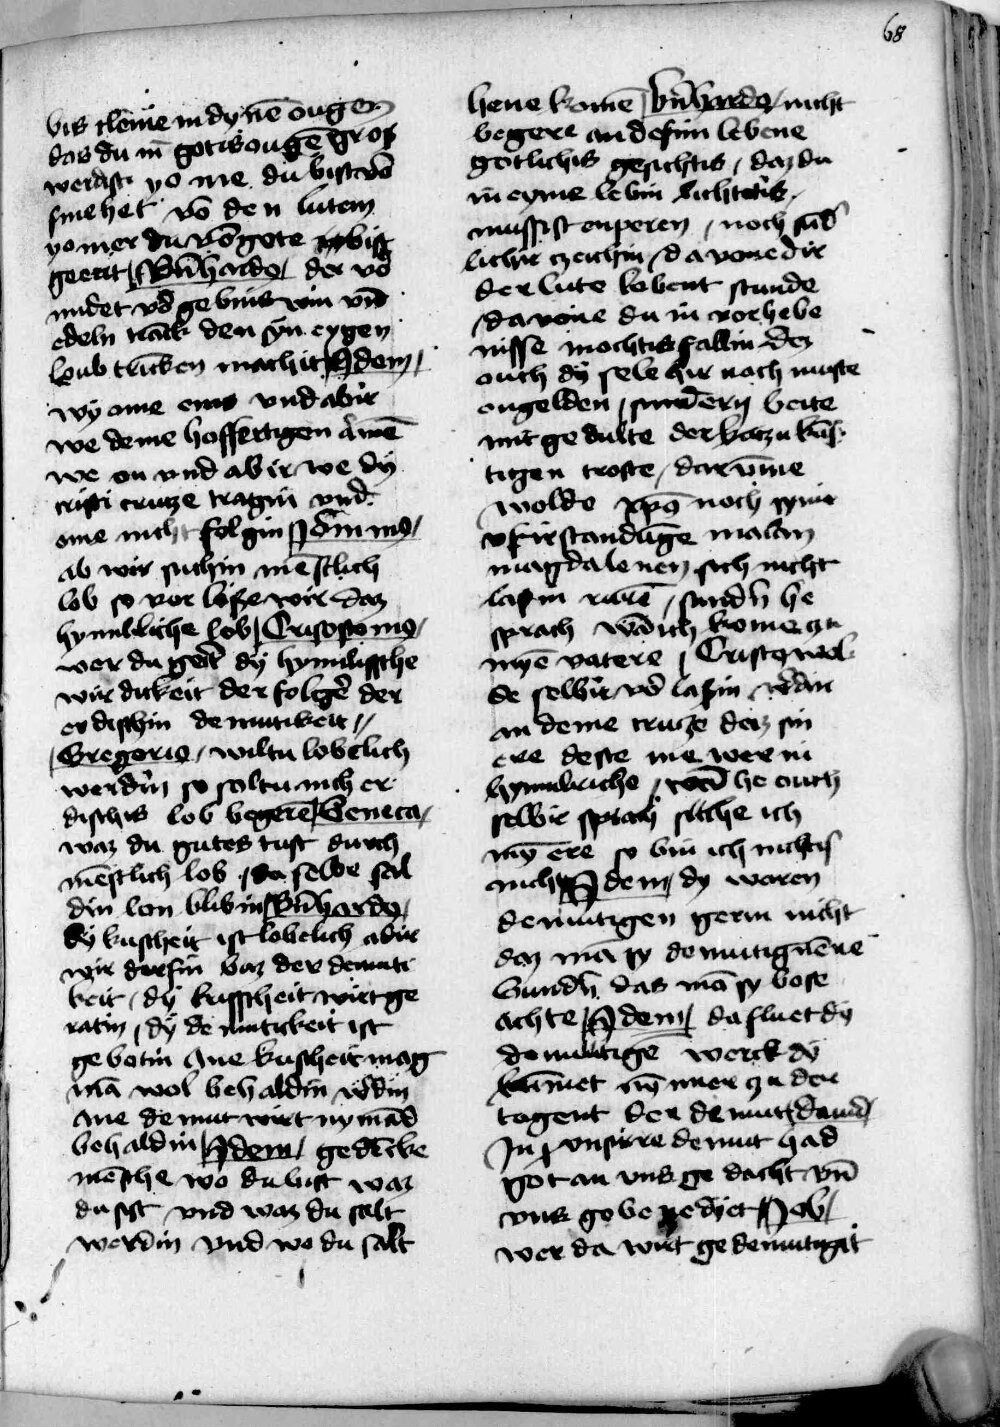 68
bis cleine in dynē ougen
das du in gotis ougē gros
werdist yo me du bist vō
smehet vō den lutem
yo mer du vō gote bist
geerit Bn̄hardꝰ der vō
midet vō gebins win vn̄
edeln tranck den syn eygen
loub trincken machit Idem
wy ome eins vnd abir
we deme hoffertigen awē
we on vnd abir we dy
cristi crucze tragin vnd
ome nicht folgin Jōnīmꝰ
ab wir suchin mēschlich
lob so vor lisze wir daz
hymmlische lob Crisostomꝰ
wer du gerst dy hymilissche
wirdickeit der folge der
erdischin demutikeit
Gregoriꝰ wiltu lobelich
werdin so saltu nich er
disches lob begerē Seneca
waz du gutes tust durch
mēschlich lob da selbe sal
din lon blibin Bn̄hardꝰ
dy kuscheit ist lobelich abir
wir dorfin baz der demuti
keit dy kusscheit wirt ge
ratin dy demutickeit ist
gebotin Ane kuscheit mag
mā wol behaldin w̄din
ane demut wirt nymād
behaldin Idem gedēcke
mēsche wo du bist waz
du sist vnd waz du salt
werdin vnd wo du salt
hene komē Bn̄hardꝰ nicht
begere an desim lebene
gotlichis gesichtis daz du
in eyme lebin
mussist enperen noch sūd
lichir czeichin da vone dir
der lute lobent stunde
da vone du in vorhebe
nisse mochtis fallin dez
ouch dy sele hir noch muste
engelden sundern beite
mit gedulte der kunf
tigen troste darūme
wolde xpūs noch syner
vfirstandūge mariam
magdalenen sich nicht
laszin rurē sundn̄ he
sprach wā ich kome zu
myē vatere Cristꝰ wol
de selbir vō laszin w̄din
an deme crucze dez sin
ere deste me were in
hymilriche wā he ouch
selbir sprach suche ich
my ere so bin ich nichtis
nicht Idem dy waren
demutigen gern nicht
daz mā sy demutig nēne
Sundn̄ das mā sy bose
achte Idem da fluet dy
demutige werck dy
kummet nymmer zu der
togent der demut dauid
In vnsirre demut had
got an vns gedacht vn̄
vns gebenedyet Job
wer da wirt gedemutigit